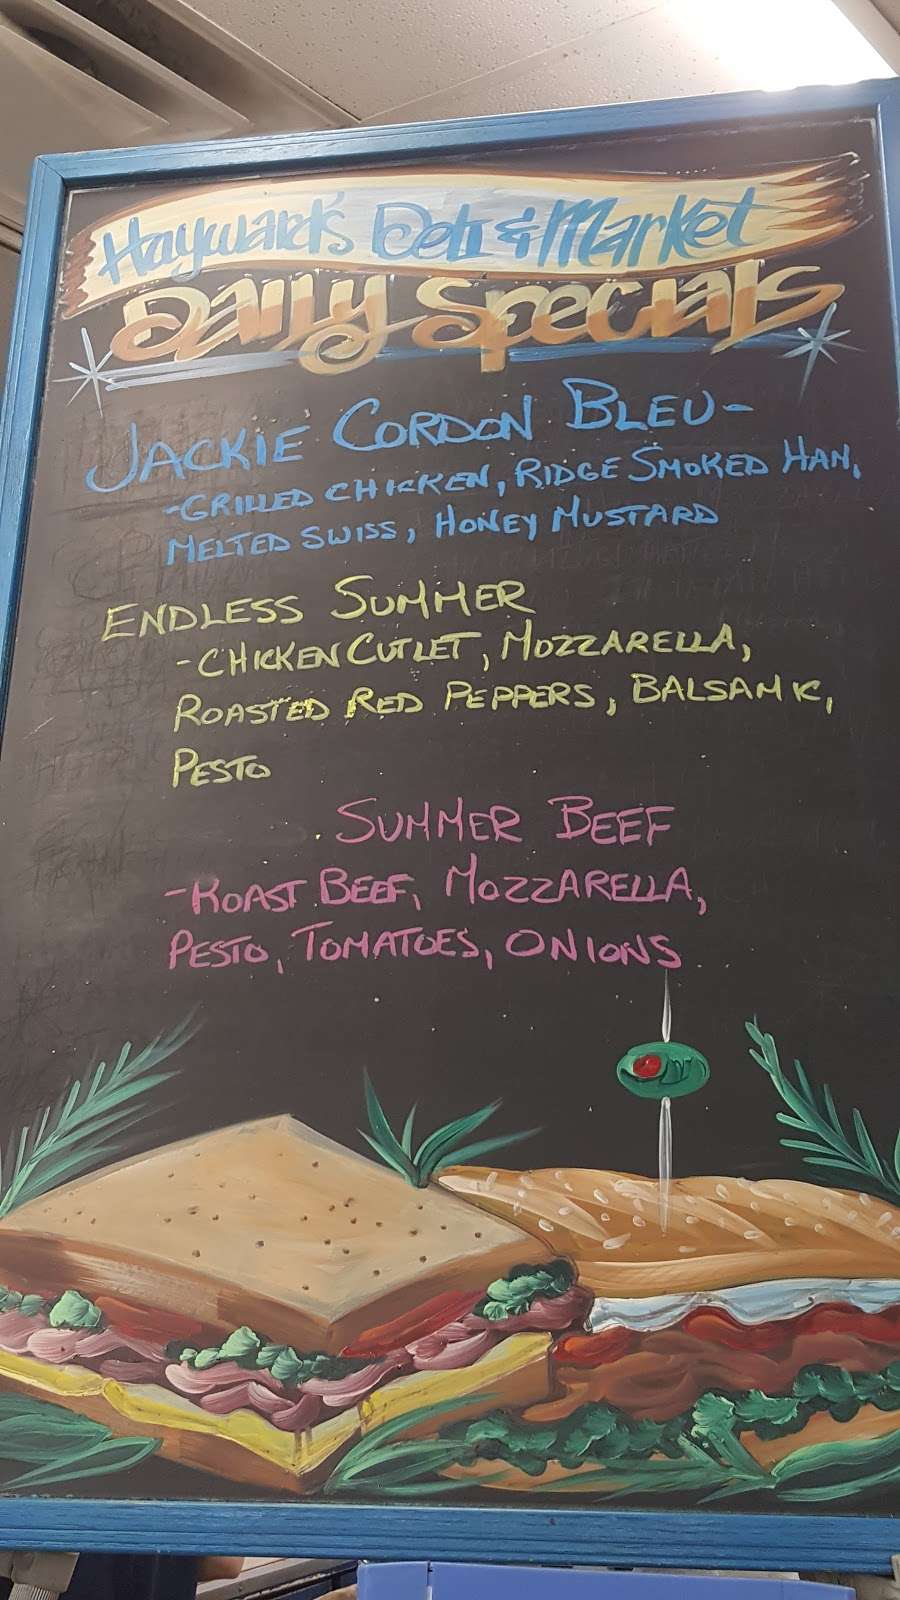 Hayward's Deli & Market
Daily Specials
JACKIE CORDON BLEU-
-GRILLED CHICKEN, RIDGE SMOKED HAM,
MELTED SWISS, HONEY MUSTARD
ENDLESS SUMMER
-CHICKEN CUTLET, MOZZARELLA,
ROASTED RED PEPPERS, BALSAMIC,
PESTO
SUMMER BEEF
-ROAST BEEF, MOZZARELLA,
PESTO, TOMATOES, ONIONS